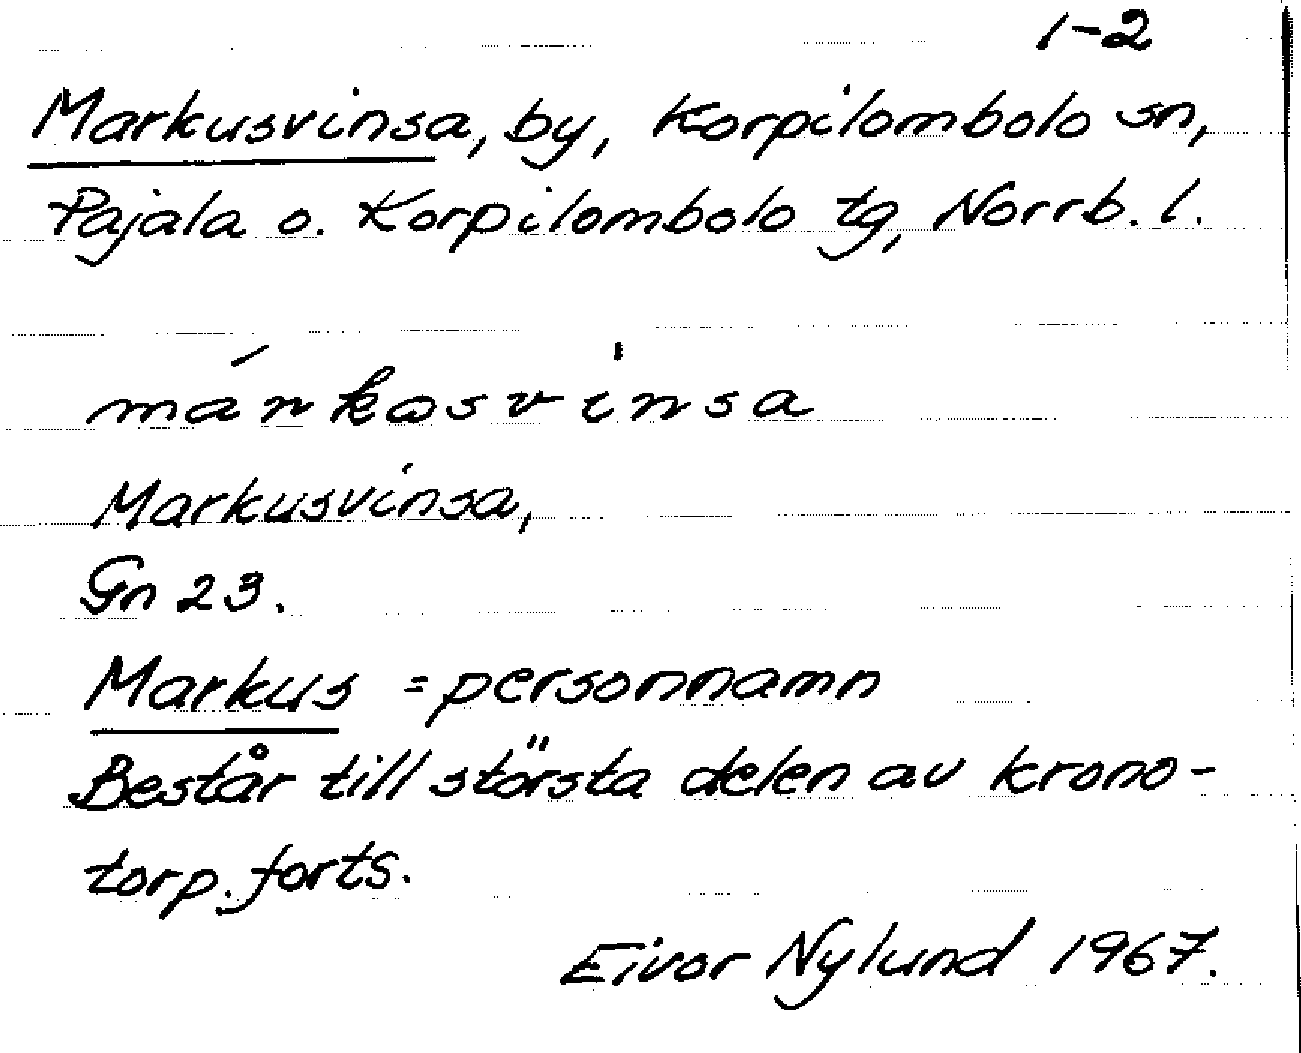 1-2
Markusvinsa, by, Korpilombolo sn,
Pajala o. Korpilombolo tg, Norrb. l.
márkosvìnsa
Markusvinsa,
Gn 23.
Markus = personnamn
Består till största delen av krono-
torp. forts.
Eivor Nylund 1967.